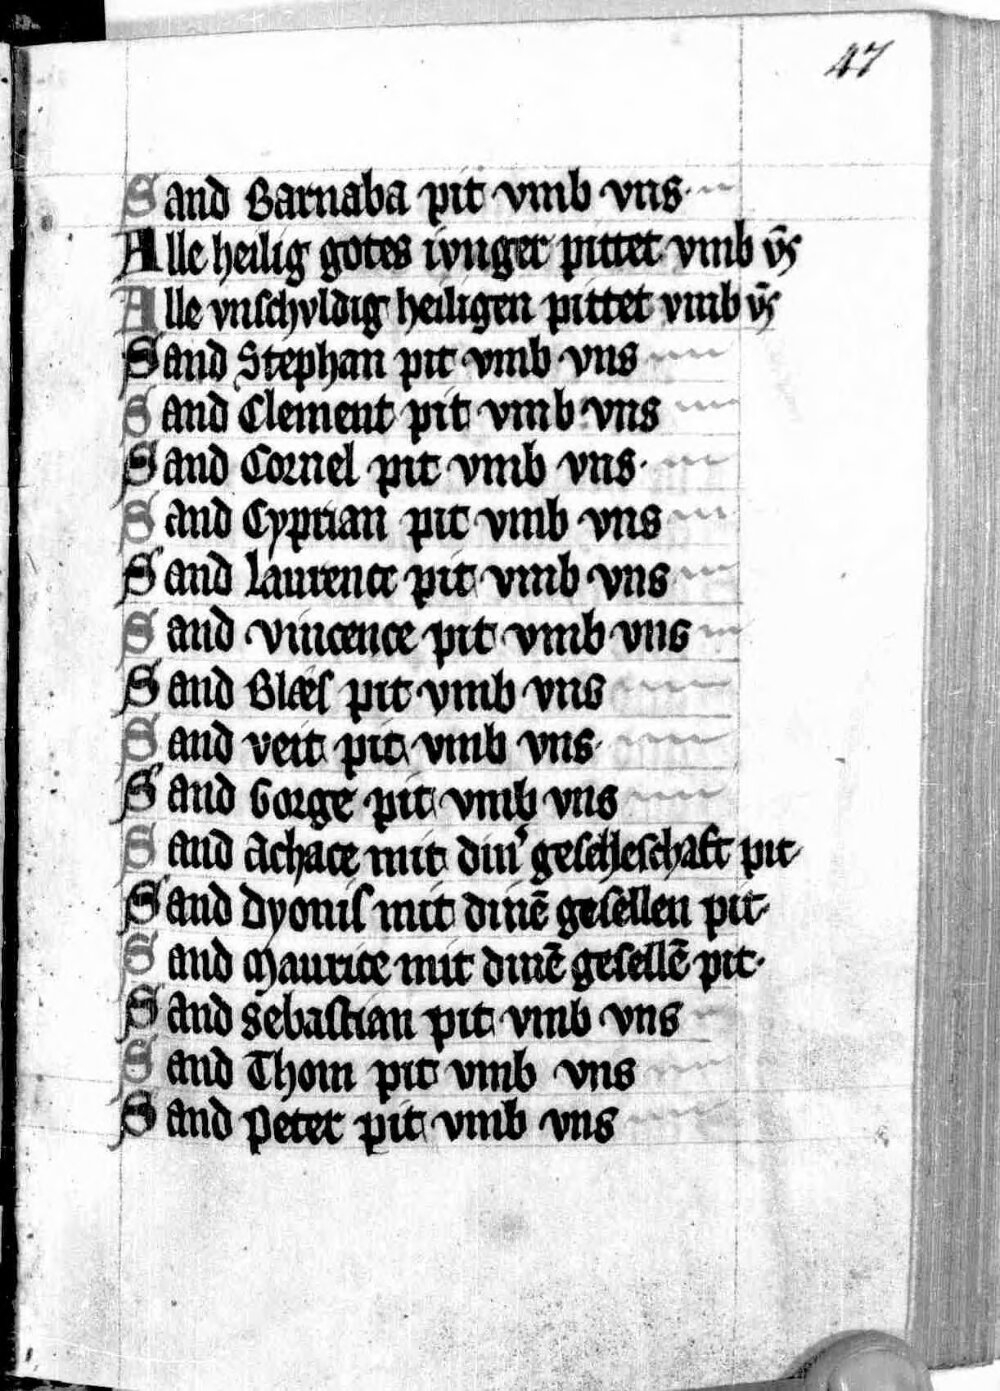 47
Sand Barnaba pit vmb vns
Alle heilig gotes ivnger pittet vmb v̄s
Alle vnschvldig heiligen pittet vmb v̄s
Sand Stephan pit vmb vns
Sand Clement pit vmb vns
Sand Cornel pit vmb vns
Sand Cyprian pit vmb vns
Sand Laurenct pit vmb vns
Sand vincence pit vmb vns
Sand Blæs pit vmb vns
Sand veit pit vmb vns
Sand Gorge pit vmb vns
Sand Achace mit din᾿ gescheschaft pit
Sand Dyonis mit dinē gesellen pit
Sand Maurice mit dinē gesellē pit
Sand Sebastian pit vmb vns
Sand Thom pit vmb vns
Sand Peter pit vmb vns